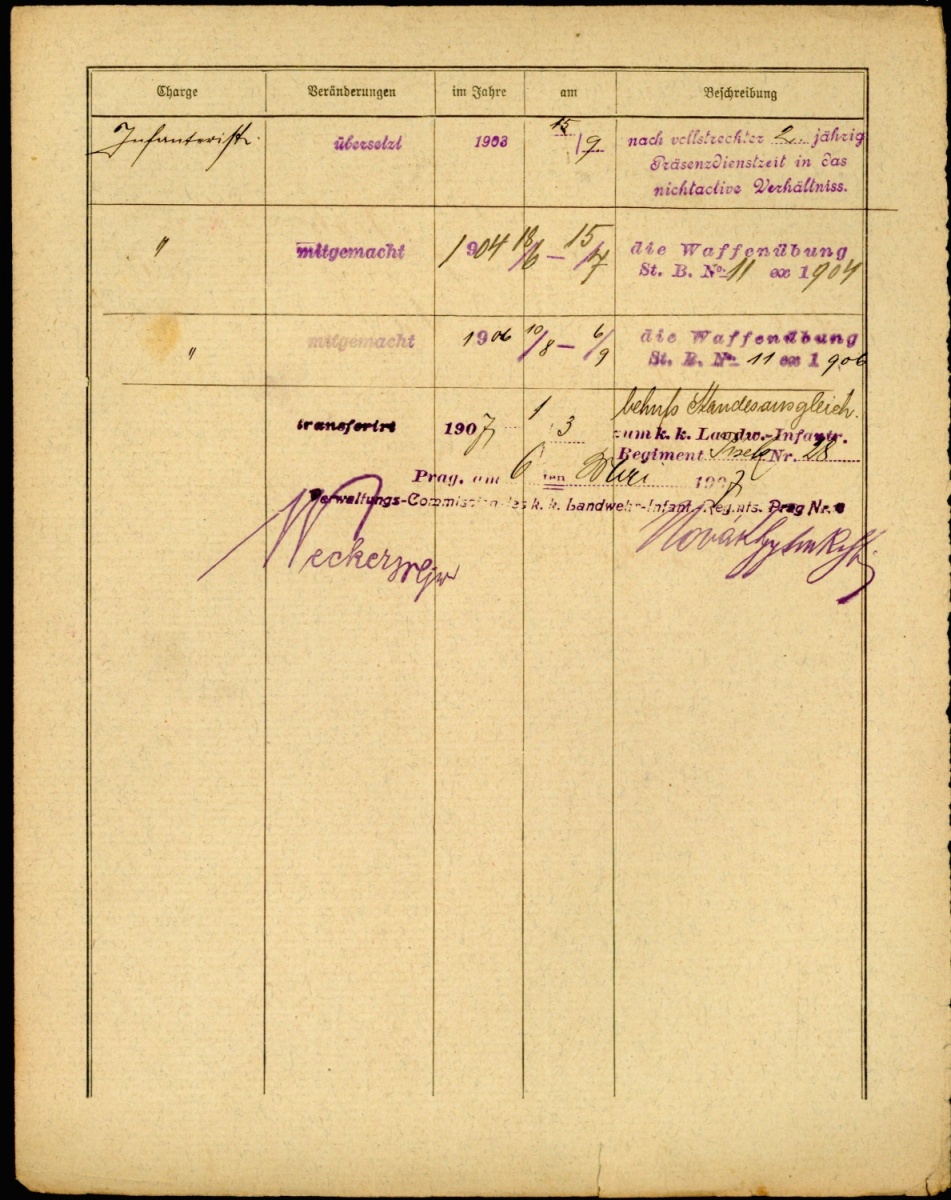 Charge Veränderungen im Jahre am Beschreibung
Infanterist übersetzt 1903 15/9 nach vollstreckter 2 jährig
Präsenzdienstzeit in das
nichtactive Verhältniss.
" mitgemacht 1904 18/6 – 15/7 die Waffenübung
St. B. No. 11 ex 1904
" mitgemacht 1906 10/8 – 6/9 die Waffenübung
St. B. No. 11 ex 1906
behufs Standesausgleich.
transferirt 1907 1/3 zum k. k. Landw.-Infantr.
Regiment Pisek Nr. 28
Prag, am 6 ten 1907
Verwaltungs-Commission des k. k. Landwehr-Infant.-Regmts. Prag Nr. 8
Novák